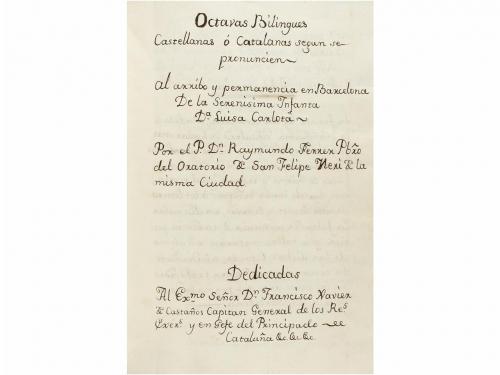 Octavas Bilingues
Castellanas ó Catalanas segun se
pronuncien
Al arribo y permanencia en Barcelona
De la Serenisima Infanta
Dª Luisa Carlota
Por el P. Dn. Raymundo Ferrer Pbro
del Oratorio de San Felipe Neri de la
misma Ciudad
Dedicadas
Al Exmo Señor Dn. Francisco Xavier
de Castaños Capitan General de los Rs.
Exers. y en Gefe del Principado de
Cataluña &c &c &c